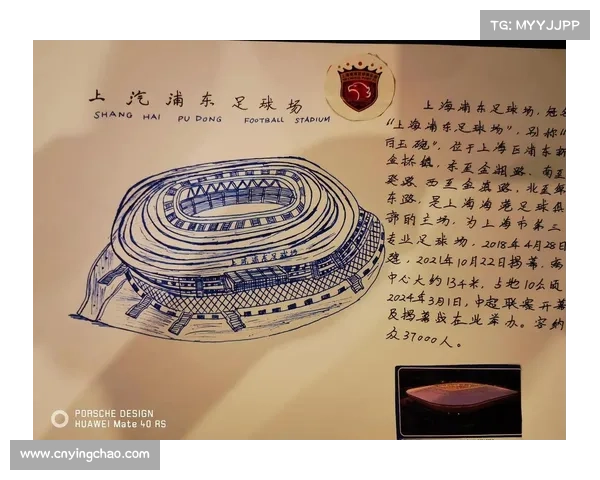 TG: MYYJJPP
上汽浦东足球场
SHANG HAI PU DONG FOOTBALL STADIUM
上海浦东足球场
上海浦东足球场,冠名
"上海浦东足球场",别称"
白玉碗",位于上海区浦东新
金桥镇,东至金湘路,南至
癸路,西至金葳路,北至锦
东路,是上海海港足球俱
部的主场,为上海市第三
专业足球场,2018年4月28日
建,2021年10月22日揭幕,海
中心大约134米,占地10公顷
2024年3月1日,中超联赛开幕
及揭幕战在此举办。容纳
众37000人。
PORSCHE DESIGN
HUAWEI Mate 40 RS
www.cnyingchao.com